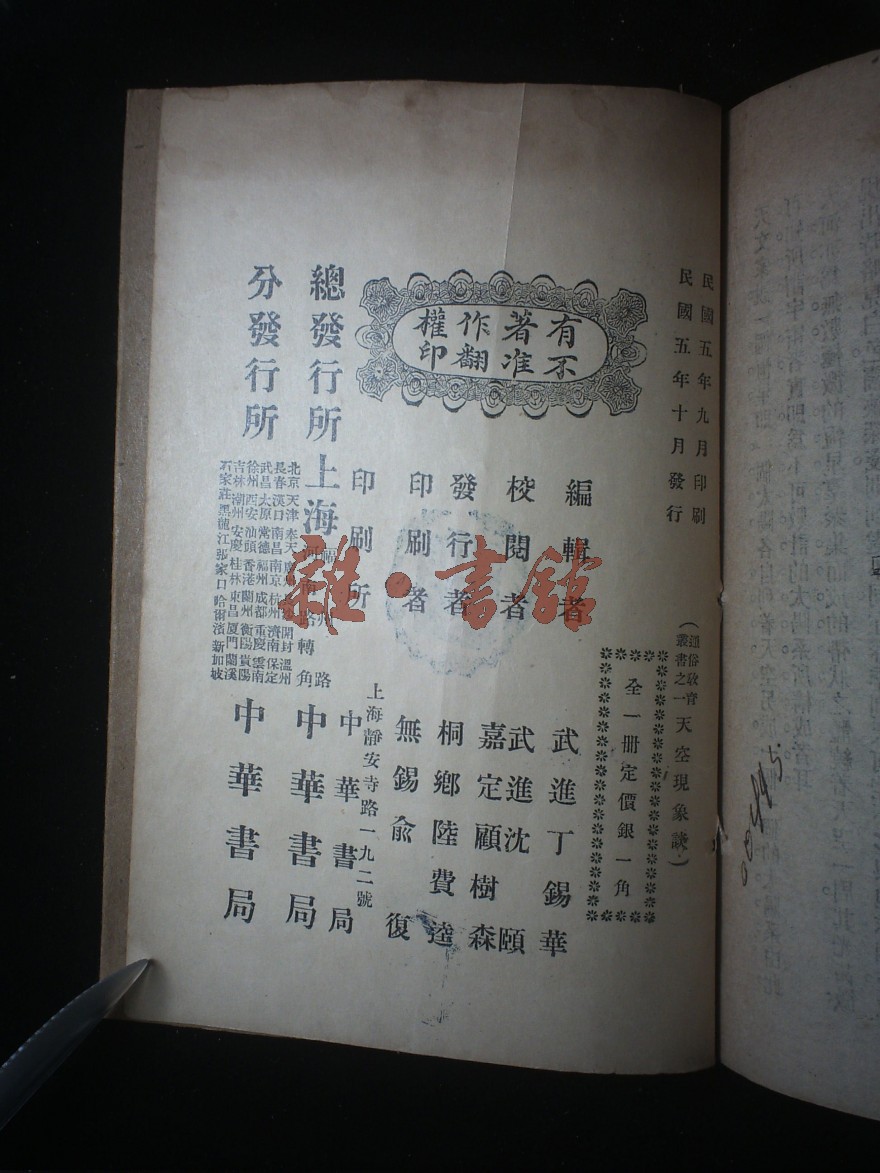 民國五年九月印刷
民國五年十月發行
（通俗教育叢書之一天空現象談）
全一冊定價銀一角
有著作權
不准翻印
編輯者 武進丁錫華
校閱者 武進沈頤
嘉定顧樹森
發行者 桐鄉陸費逵
印刷者 無錫俞復
印刷所 上海靜安寺路一九二號 中華書局
總發行所 上海 福州路河南路轉角 中華書局
分發行所 中華書局
北京 天津 奉天 廣州 開封 溫州
長春 漢口 南昌 南京 杭州 濟南 保定
武昌 太原 常德 福州 成都 重慶 雲南
徐州 西安 汕頭 香港 蘭州 衡陽 貴陽
吉林 潮州 安慶 桂林 東昌 厦門 蘭溪
石家莊 黑龍江 張家口 哈爾濱 新加坡
雜·書館